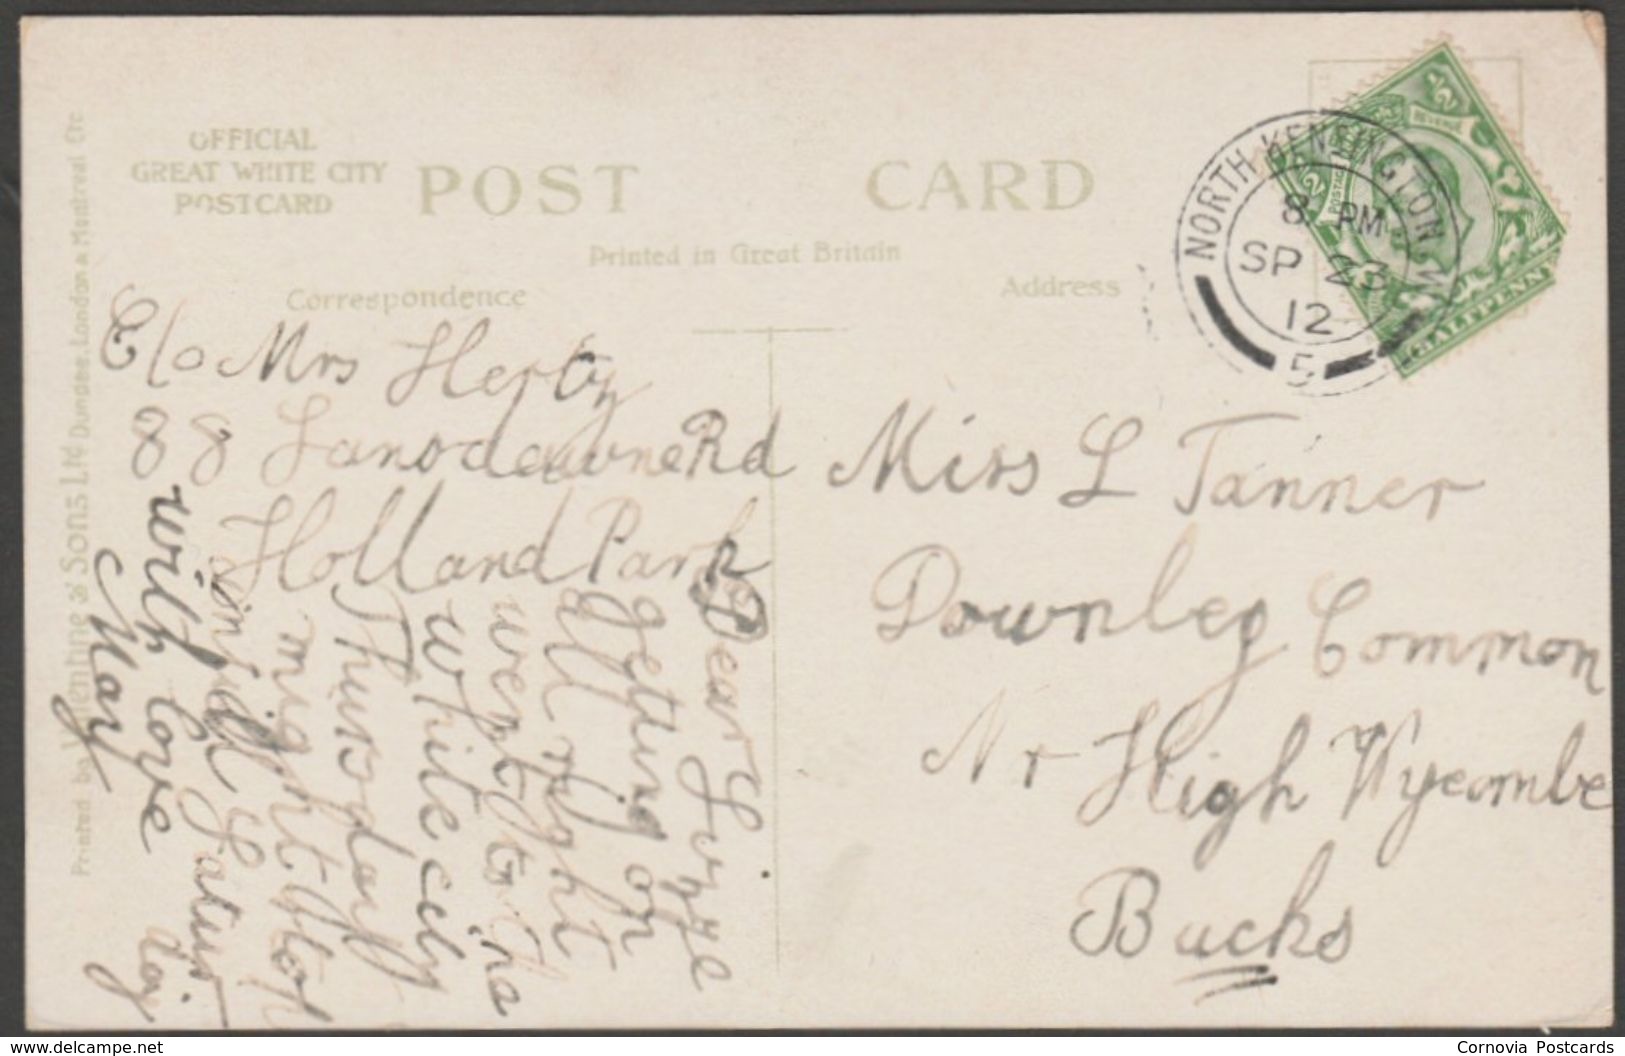 OFFICIAL
GREAT WHITE CITY
POSTCARD
POST CARD
Printed in Great Britain
Correspondence
Address
Printed by Valentine & Sons Ltd Dundee, London & Montreal Etc
C/o Mrs Hertz
88 Lansdowne Rd
Holland Park
Dear
getting on
all right
went to the
white city
Thursday
might
with love
Mary
Miss L Tanner
Downley Common
Nr High Wycombe
Bucks
NORTH KENSINGTON W
8 PM
SP 23
12
5
1/2
REVENUE
1/2
POSTAGE
HALFPENNY
www.delcampe.net
Cornovia Postcards